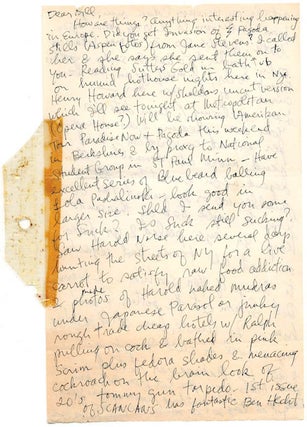 Dear Bill,
How are things? Anything interesting happening
in Europe. Did you get Invasion of Pagoda
Stills (Aspen Notes) from Jane Stevens? I called
her & she says she sent them on to
you. Reading Gutter Gods in bathtub
on humid hothouse nights here in NYC.
Henry Howard here w/ Sheldon's uncut version
which I'll see tonight at Metropolitan
(Opera Home?) Will be showing American
Tour Paradise Now + Pagoda this weekend
in Berkshires & by proxy to National
Student Group in by Paul Mann - Have
excellent series of Blue beard balling
Lola look good in
larger size. Shld I send you some
for Suck? Is Suck still sucking?
Saw Harold Norse here several days
hunting the streets of NY for a live
carrot to satisfy raw food addiction
2 photos of Harold naked mudras
under Japanese Parasol or funky
rough trade cheap hotels w/ Ralph
pulling on cock & bathed in pink
Scrim plus fedora shades & menacing
cockroach on the brain look of
20's tommy gun torpedo. 1st issue
of SCANCANS has fantastic Ben Hecht